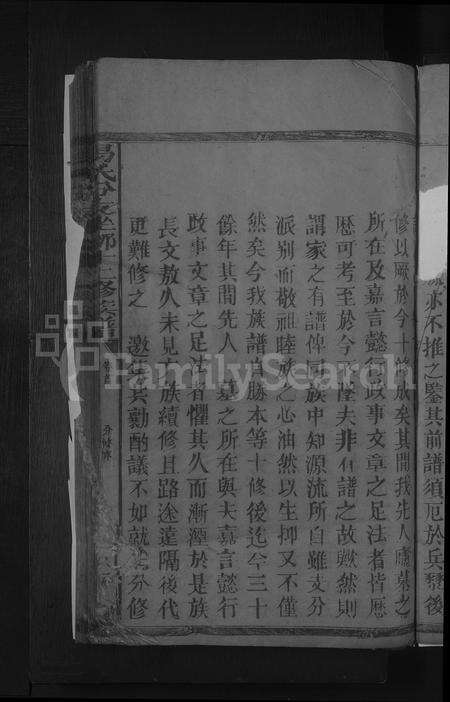 亦不推之鑒其前譜須厄於兵燹後
修以厥於今十修放矣其間我先人廬墓之
所在及嘉言懿行政事文章之足法者皆歷
歷可考至於今不墜夫非有譜之故歟然則
謂家之有譜俾同族中知源流所自雖支分
派别而敬祖睦族之心油然以生抑又不僅
然矣今我族譜自勝本等十修後迄今三十
餘年其間先人墓之所在與夫嘉言懿行
政事文章之足法者懼其久而漸湮於是族
長文敖久未見族續修且路途遠隔後代
更難修之 邀集共勷酌議不如就分修
氏分十修族譜
卷首
FamilySearch